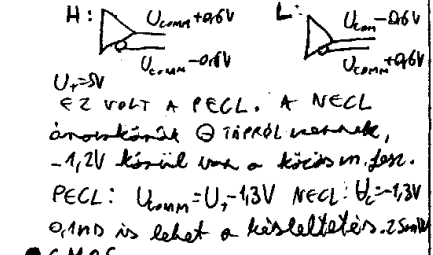 H: U_COMM+0,6V L: U_COM-0,6V
U_COMM-0,6V U_COMM+0,6V
U_T=5V
EZ VOLT A PECL. A NECL
⊖ TÁPRÓL mennek,
-1,2V körül van a közös m. fesz.
PECL: U_COMM=U_T-1,3V NECL: U_C=-1,3V
0,1nS is lehet a késleltetés.